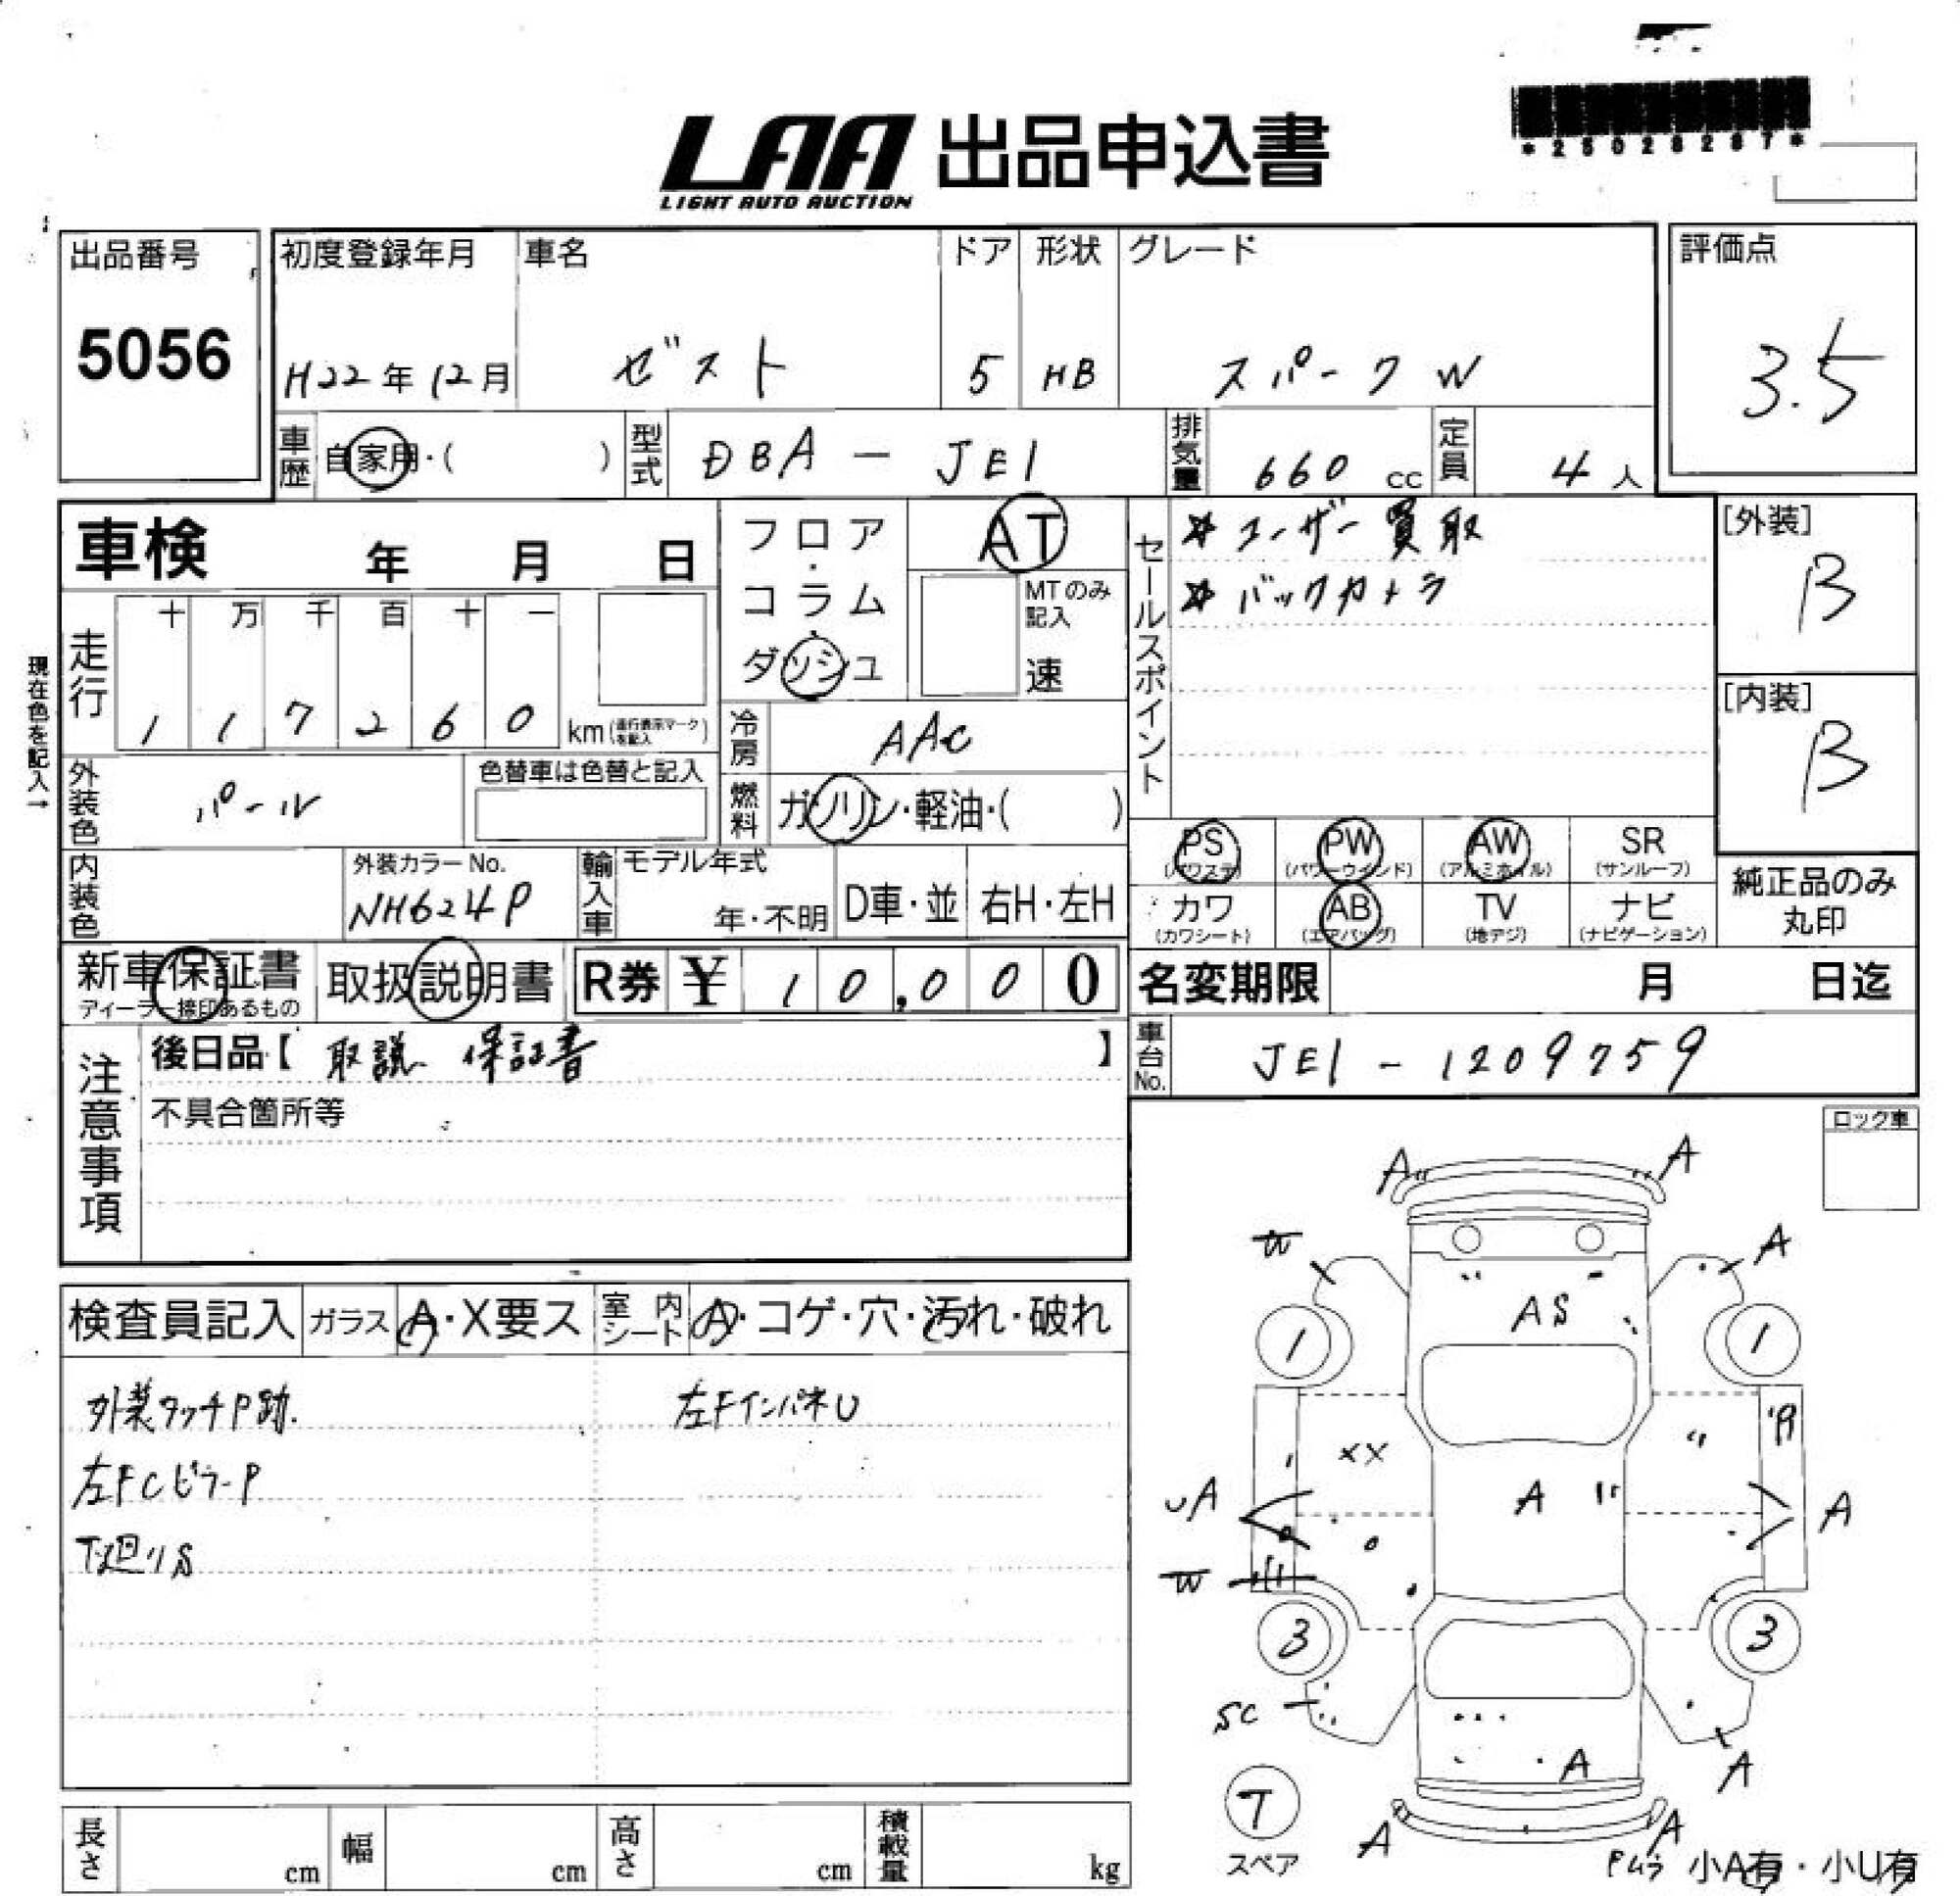 LAA 出品申込書
LIGHT AUTO AUCTION
*25028287*
出品番号
5056
初度登録年月
H22年12月
車名
ゼスト
ドア
5
形状
HB
グレード
スパーク W
評価点
3.5
車歴 自家用・( )
型式 DBA - JE1
排気量 660 cc
定員 4 人
車検 年 月 日
フロア・コラム・ダッシュ
AT
MTのみ記入
速
セールスポイント
☆ユーザー買取
☆バックカメラ
[外装]
B
[内装]
B
現在色を記入→
走行
十 万 千 百 十 一
1 1 7 2 6 0 km(走行表示マークを記入)
冷房 AAC
外装色 パール
色替車は色替と記入
燃料 ガソリン・軽油・( )
内装色
外装カラーNo.
NH624P
輸入車
モデル年式
年・不明
D車・並
右H・左H
PS (パワステ)
PW (パワーウインド)
AW (アルミホイル)
SR (サンルーフ)
カワ (カワシート)
AB (エアバッグ)
TV (地デジ)
ナビ (ナビゲーション)
純正品のみ丸印
新車保証書
ディーラー捺印あるもの
取扱説明書
R券 ¥ 10,000
名変期限 月 日迄
注意事項
後日品【 取説 保証書 】
車台No. JE1 - 1209759
不具合箇所等
ロック車
検査員記入
ガラス A・X要ス
室内シート A・コゲ・穴・汚れ・破れ
外装タッチP跡.
左FインパネU
左FCピラーP
下廻りS
A A
W A
AS
1 1
XX
UA A A
W
3 3
SC
A A
T
スペア
A A
小A有・小U有
長さ cm
幅 cm
高さ cm
積載量 kg